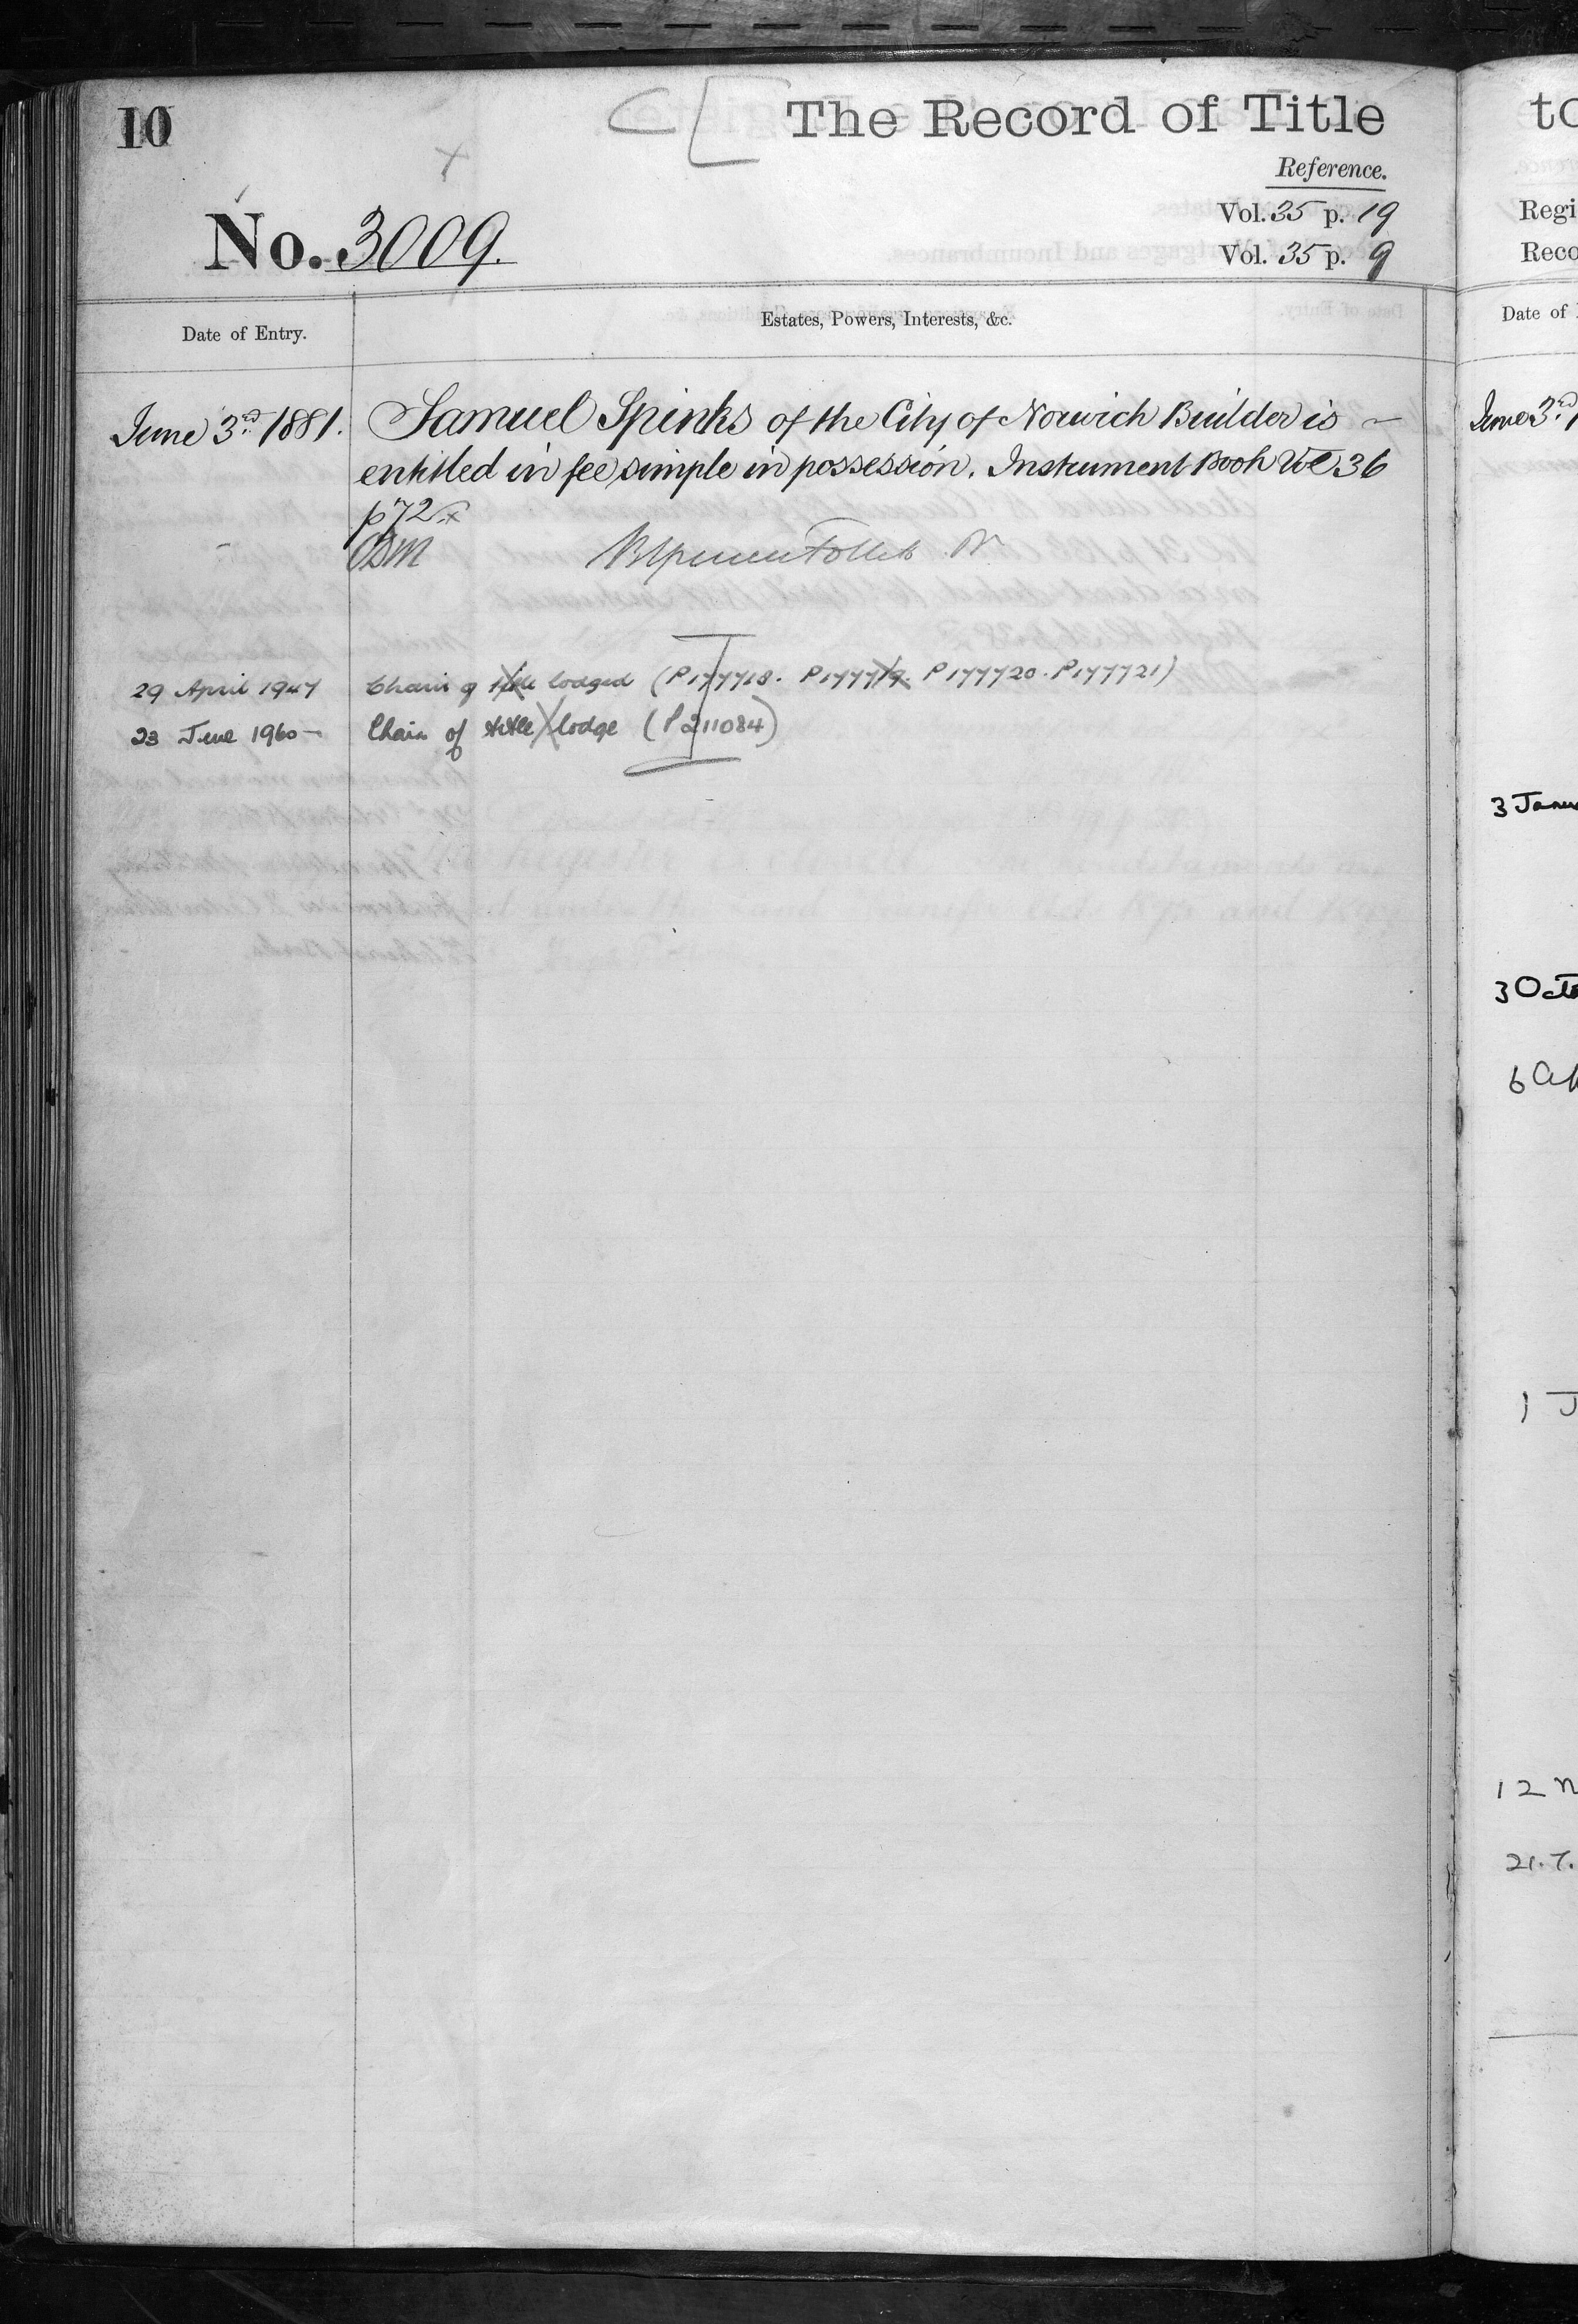 10
The Record of Title
Reference.
Vol. 35 p. 19
No. 3009.
Vol. 35 p. 9
Date of Entry.
Estates, Powers, Interests, &c.
June 3rd 1881. Samuel Spinks of the City of Norwich Builder is
entitled in fee simple in possession. Instrument Book Vol 36
p 72
29 April 1947 Chain of title lodged (P177718. P177719. P177720. P177721)
23 June 1960 Chain of title lodge (P211084)
to
Regi
Reco
Date of
June 3rd 1
3 Janu
3 Octo
6 Ap
1 J
12 N
21.7.